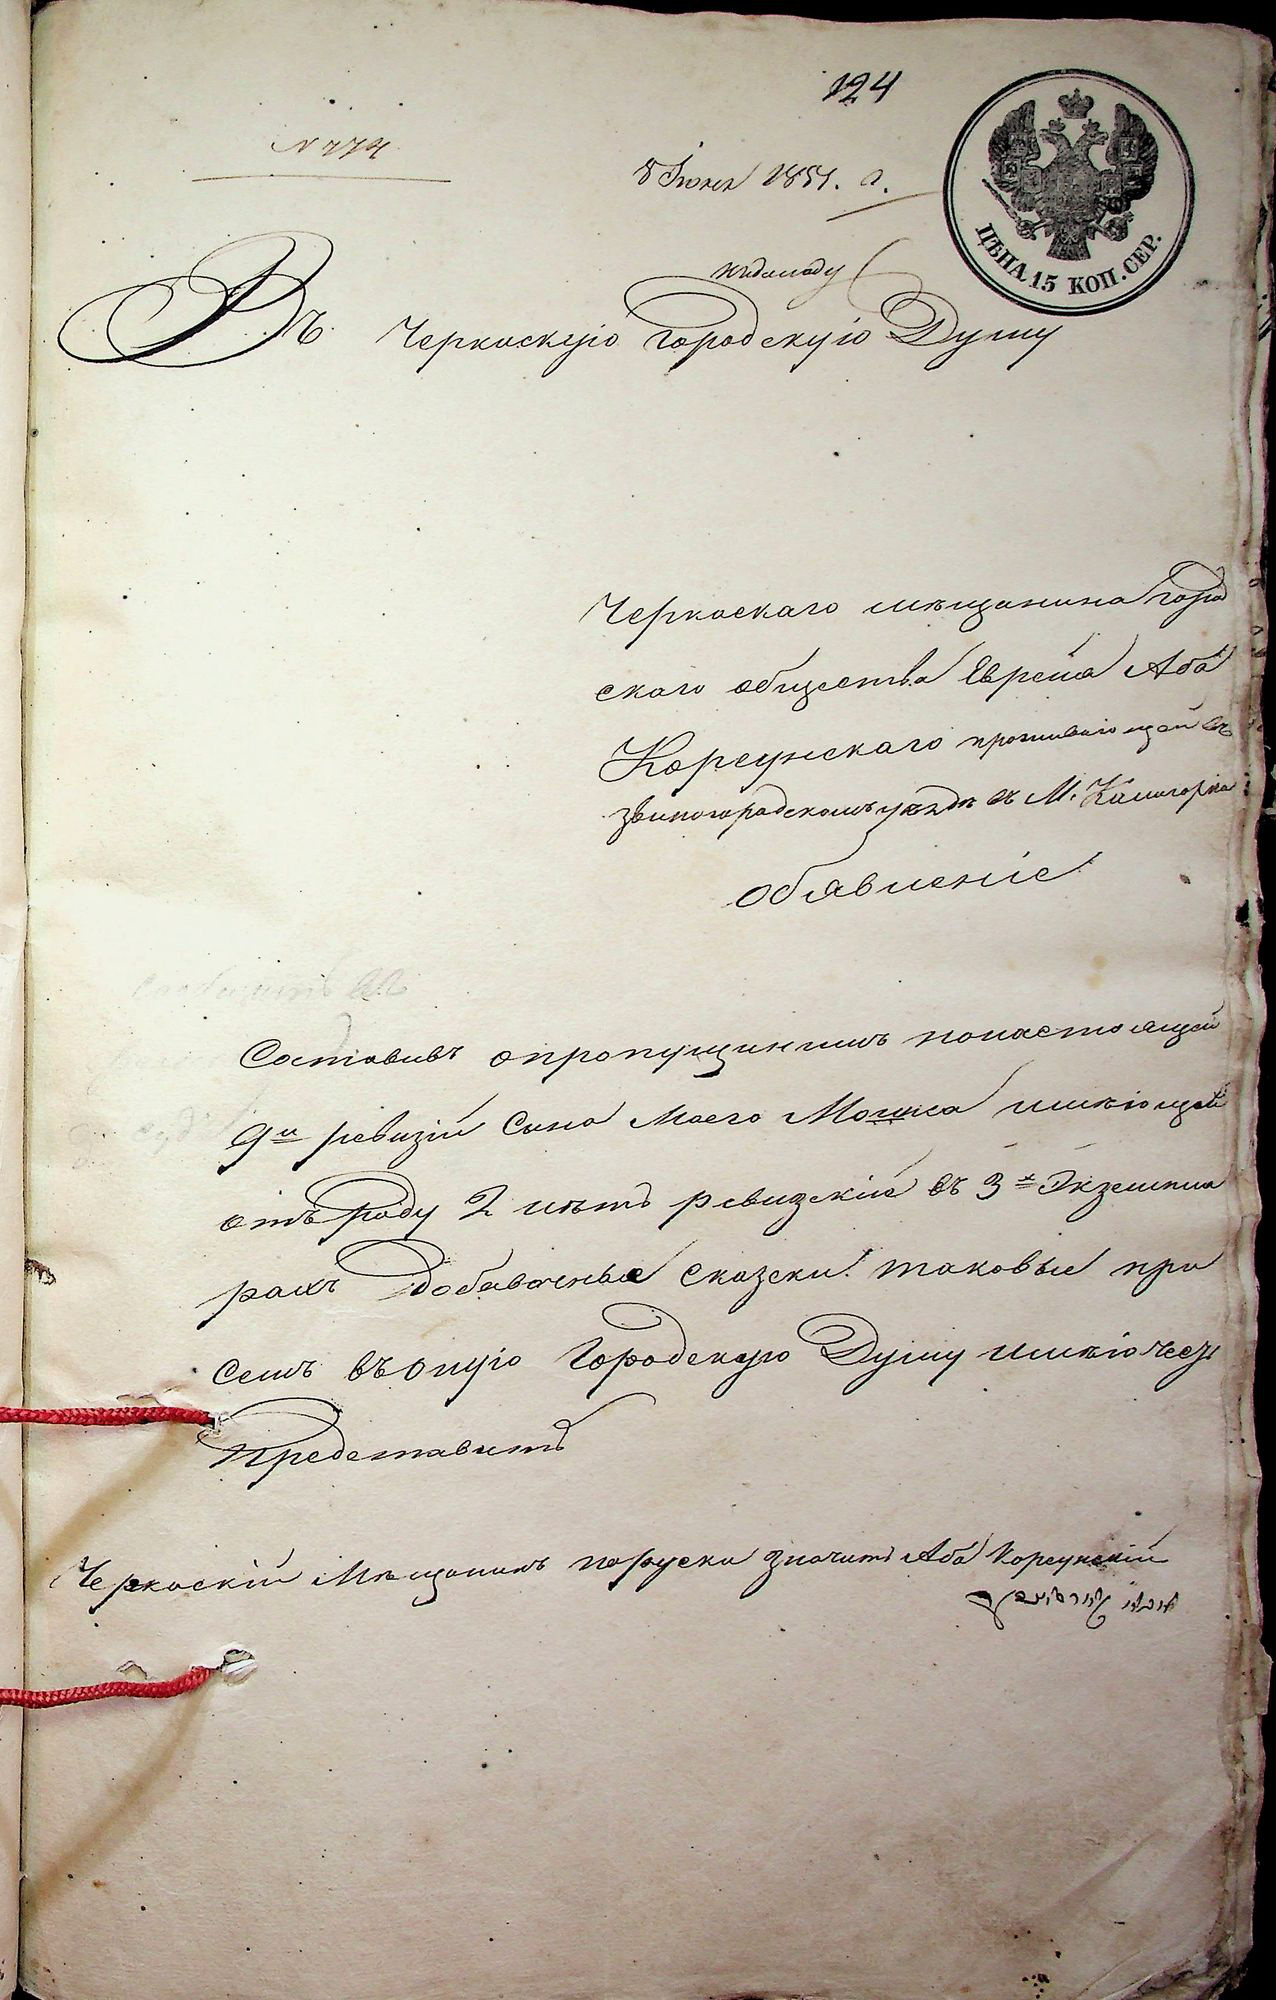 124
N 774
8 Іюня 1851. г.
ЦѢНА 15 КОП. СЕР.
къ докладу
Въ Черкаскую Городскую Думу
Черкаскаго мѣщанина город
скаго общества Еврея Аба
Корсунскаго проживающей въ
Звиногородскомъ уездѣ въ М.
обявленіе
Составивъ опропущинимъ понастоящей
9й ревизіи сина Моего Мошка имѣющей
отъ роду 2 лѣтъ ревизскіе въ 3х Экземпля
рахъ добавочные сказски. таковые при
семъ въ оную Городскую Думу имѣю честь
Представить
Черкаскій Мѣщанинъ поруски значитъ Аба Корсунскій